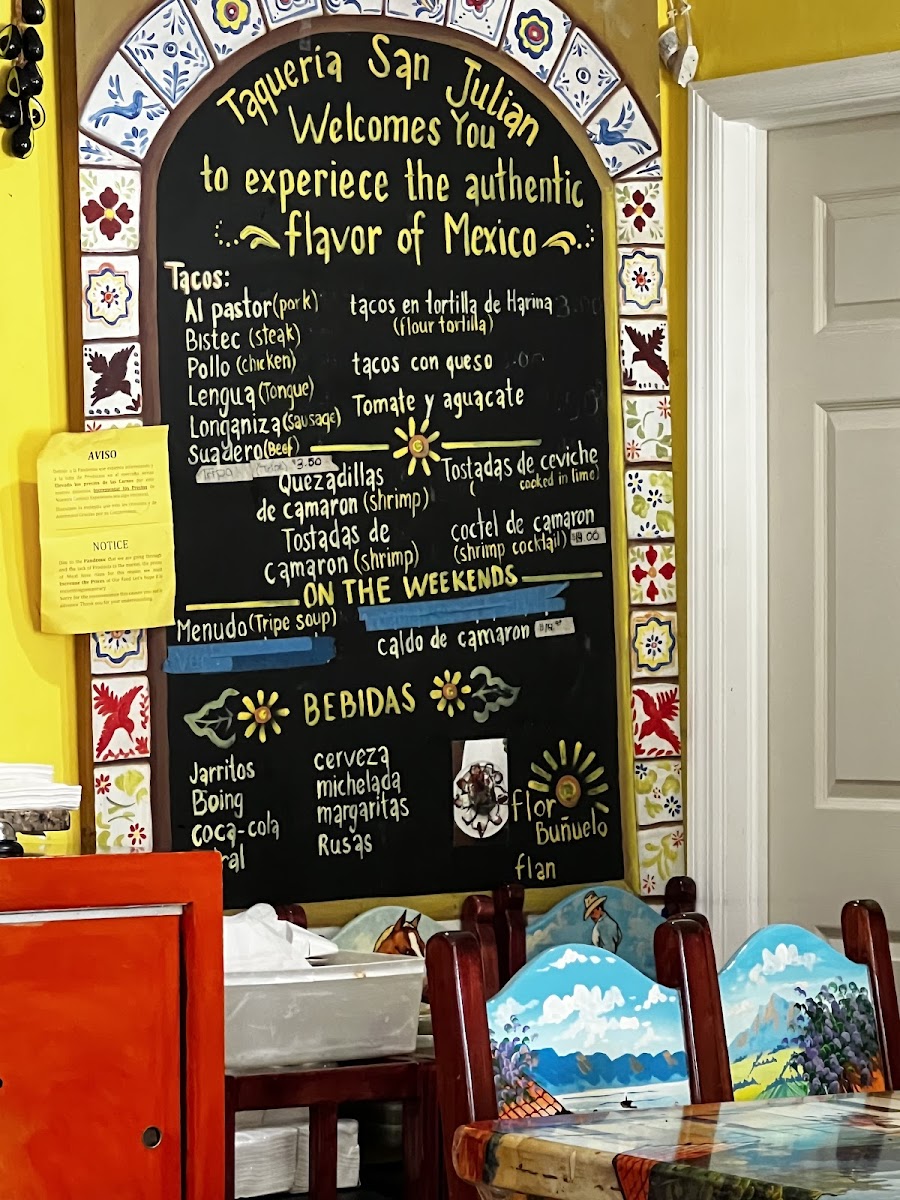 Taqueria San Julian
Welcomes You
to experiece the authentic
flavor of Mexico
Tacos:
Al pastor (pork)
Bistec (steak)
Pollo (chicken)
Lengua (Tongue)
Longaniza (Sausage)
Suadero (Beef)
Tripa $3.50
tacos en tortilla de Harina
(flour tortilla)
tacos con queso
Tomate y aguacate
Quezadillas
de camaron (shrimp)
Tostadas de
camaron (shrimp)
Tostadas de ceviche
(cooked in lime)
coctel de camaron
(shrimp cocktail)
ON THE WEEKENDS
Menudo (Tripe soup)
caldo de camaron
BEBIDAS
Jarritos
Boing
coca-cola
cerveza
michelada
margaritas
Rusas
flor
Buñuelo
flan
AVISO
NOTICE